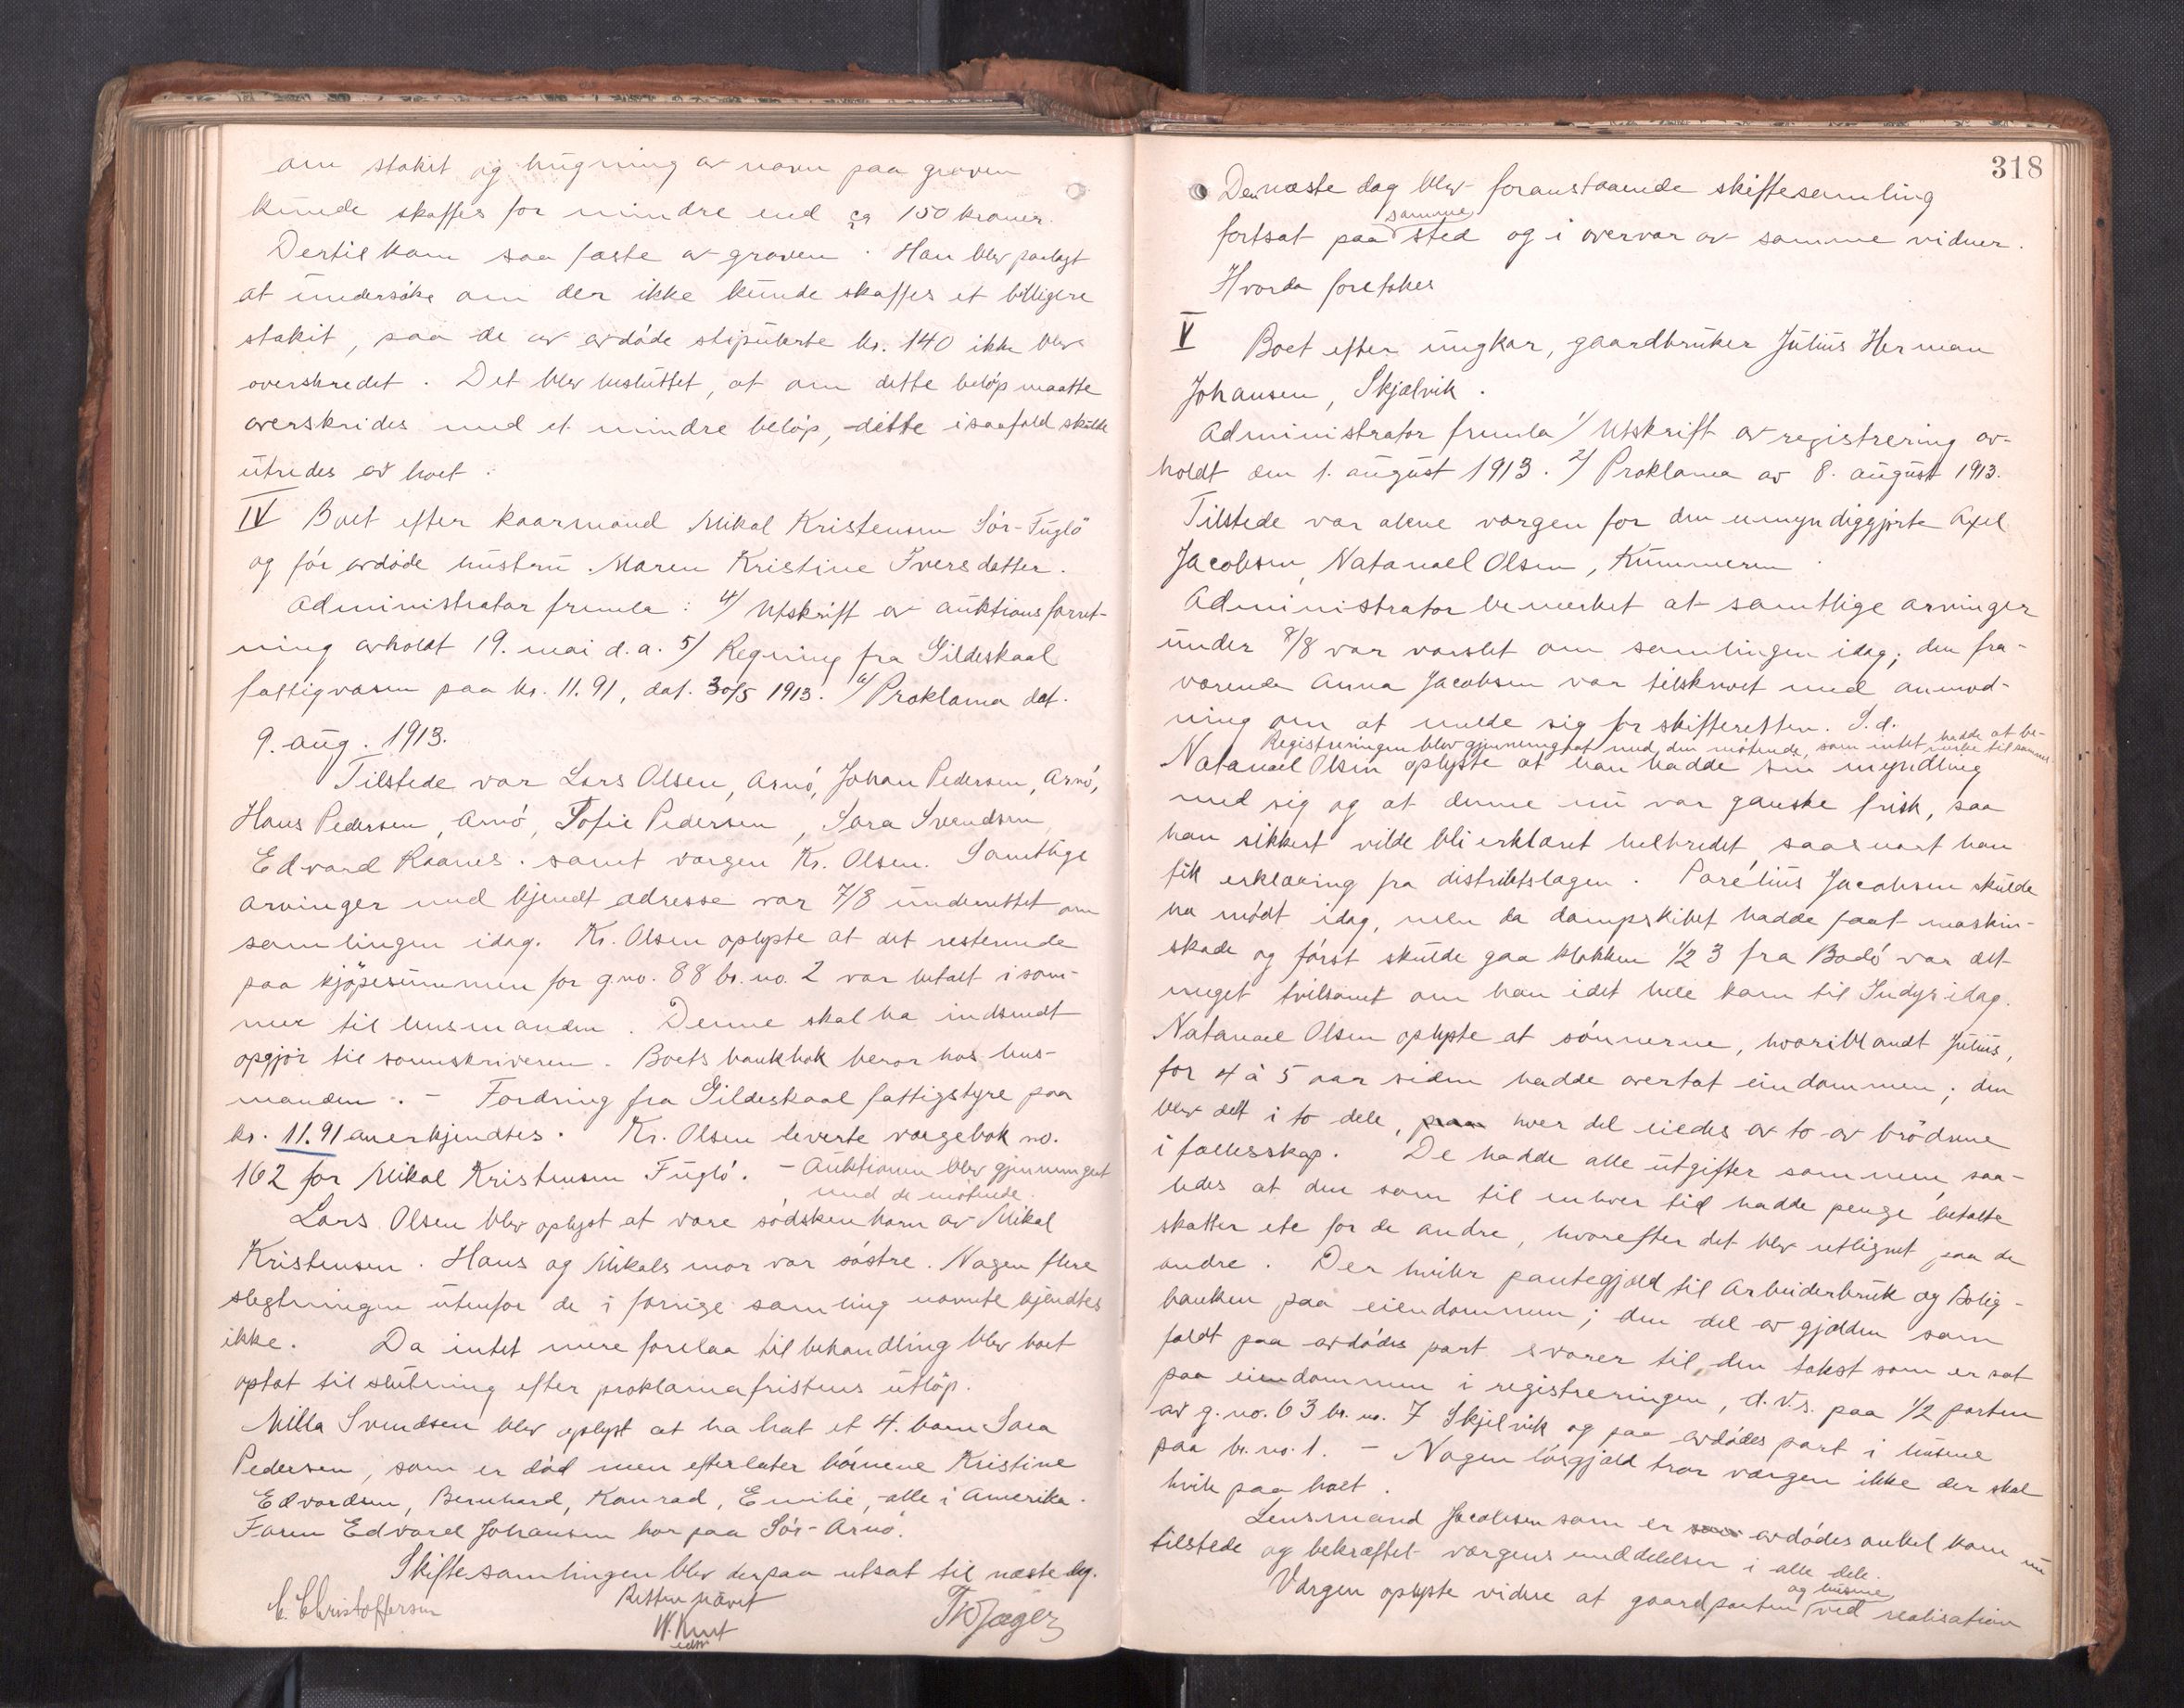 om stakit og hugning av navn paa graven
kunde skaffes for mindre end ca 150 kroner.
Dertil kom saa fæste av graven. Han blev paalagt
at undersöke om der ikke kunde skaffes et billigere
stakit, saa de av avdöde stipulerte kr. 140 ikke blev
overskredet. Det blev besluttet, at om dette belöp maatte
overskrides med et mindre belöp, dette isaafald skulde
utredes av boet.
IV Boet efter kaarmand Mikal Kristensen Sör-Fuglö
og för avdöde hustru Maren Kristine Iversdatter.
Administrator fremla: 4/ Utskrift av auktionsforret-
ning avholdt 19. mai d.a. 5/ Regning fra Gildeskaal
fattigvæsen paa kr. 11.91, dat. 30/5 1913. 6/ Proklama dat.
9. aug. 1913.
Tilstede var Lars Olsen, Arnö, Johan Pedersen, Arnö,
Hans Pedersen, Arnö, Sofie Pedersen, Sara Svendsen
Edvard Raanes. samt værgen Kr. Olsen. Samtlige
arvinger med kjendt adresse var 7/8 underrettet om
samlingen idag. Kr. Olsen oplyste at det resterende
paa kjöpesummen for g.no. 88 br. no. 2 var betalt i som-
mer til lensmanden. Denne skal ha indsendt
opgjör til sorenskriveren. Boets bankbok beror hos lens-
manden. - Fordring fra Gildeskaal fattigstyre paa
kr. 11.91 anerkjendtes. Kr. Olsen leverte værgebok no.
162 for Mikal Kristensen Fuglö. - Auktionen blev gjennemgaat
med de mötende.
Lars Olsen blev oplyst at være södskenbarn av Mikal
Kristensen. Hans og Mikals mor var söstre. Nogen flere
slegtninger utenfor de i forrige samling nævnte kjendtes
ikke. Da intet mere forelaa til behandling blev boet
optat til slutning efter proklamafristens utlöp.
Milla Svendsen blev oplyst at ha hat et 4. barn Sara
Pedersen, som er död men efterlater börnene Kristine
Edvardsen, Bernhard, Konrad, Emilie, alle i Amerika.
Faren Edvard Johansen bor paa Sör-Arnö.
Skiftesamlingen blev derpaa utsat til næste dag.
Retten hævet
C. Christoffersen W. Knut Th Jæger
edsv
318
Den næste dag blev foranstaaende skiftesamling
fortsat paa samme sted og i overvær av samme vidner.
Hvorda foretokes
V Boet efter ungkar, gaardbruker Julius Herman
Johansen, Skjælvik.
Administrator fremla 1/ Utskrift av registrering av-
holdt den 1. august 1913. 2/ Proklama av 8. august 1913.
Tilstede var alene værgen for den umyndiggjorte Axel
Jacobsen, Natanael Olsen, Kummeren.
Administrator bemerket at samtlige arvinger
under 8/8 var varslet om samlingen idag; den fra-
værende Anna Jacobsen var tilskrevet med anmod-
ning om at melde sig for skifteretten. S.d.
Registreringen blev gjennemgaat med den mötende, som intet hadde at be-
merke til samme.
Natanael Olsen oplyste at han hadde sin myndling
med sig og at denne nu var ganske frisk, saa
han sikkert vilde bli erklæret helbredet saasnart han
fik erklæring fra distriktslægen. Parelius Jacobsen skulde
ha mödt idag, men da dampskibet hadde faat maskin-
skade og först skulde gaa klokken 1/2 3 fra Bodö var det
meget tvilsomt om han idet hele kom til Indyr idag.
Natanael Olsen oplyste at sönnerne, hvoriblandt Julius,
for 4 à 5 aar siden hadde overtat eindommen; den
blev delt i to dele, hver del eiedes av to av brödrene
i fællesskap. De hadde alle utgifter sammen, saa-
ledes at den som til enhver tid hadde penge betalte
skatter etc for de andre, hvorefter det blev utlignet paa de
andre. Der hviler pantegjæld til Arbeiderbruk og Bolig-
banken paa eiendommen; den del av gjælden som
faldt paa avdödes part svarer til den takst som er sat
paa eiendommen i registreringen, d.v.s. paa 1/2 parten
av g. no. 63 br. no. 7 Skjelvik og paa avdödes part i husene
paa br. no. 1. - Nogen lösgjæld tror værgen ikke der skal
hvile paa boet.
Lensmand Jacobsen som er avdödes onkel kom nu
tilstede og bekræftet værgens meddelelser i alle dele.
Værgen oplyste videre at gaardparten og husene ved realisation